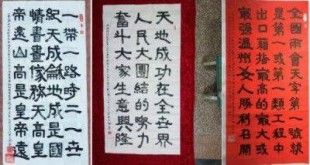 一帶一路時二
天成地成是國
情書畫家移天高皇
帝遠山高是皇帝遠
天地成功在全世界
人民大團結的努力
奮斗大家生意興隆
全國兩會天字第一號
是第一或第一類工程中
出口箱指最高的最大或
最強溫州女人勝利召開